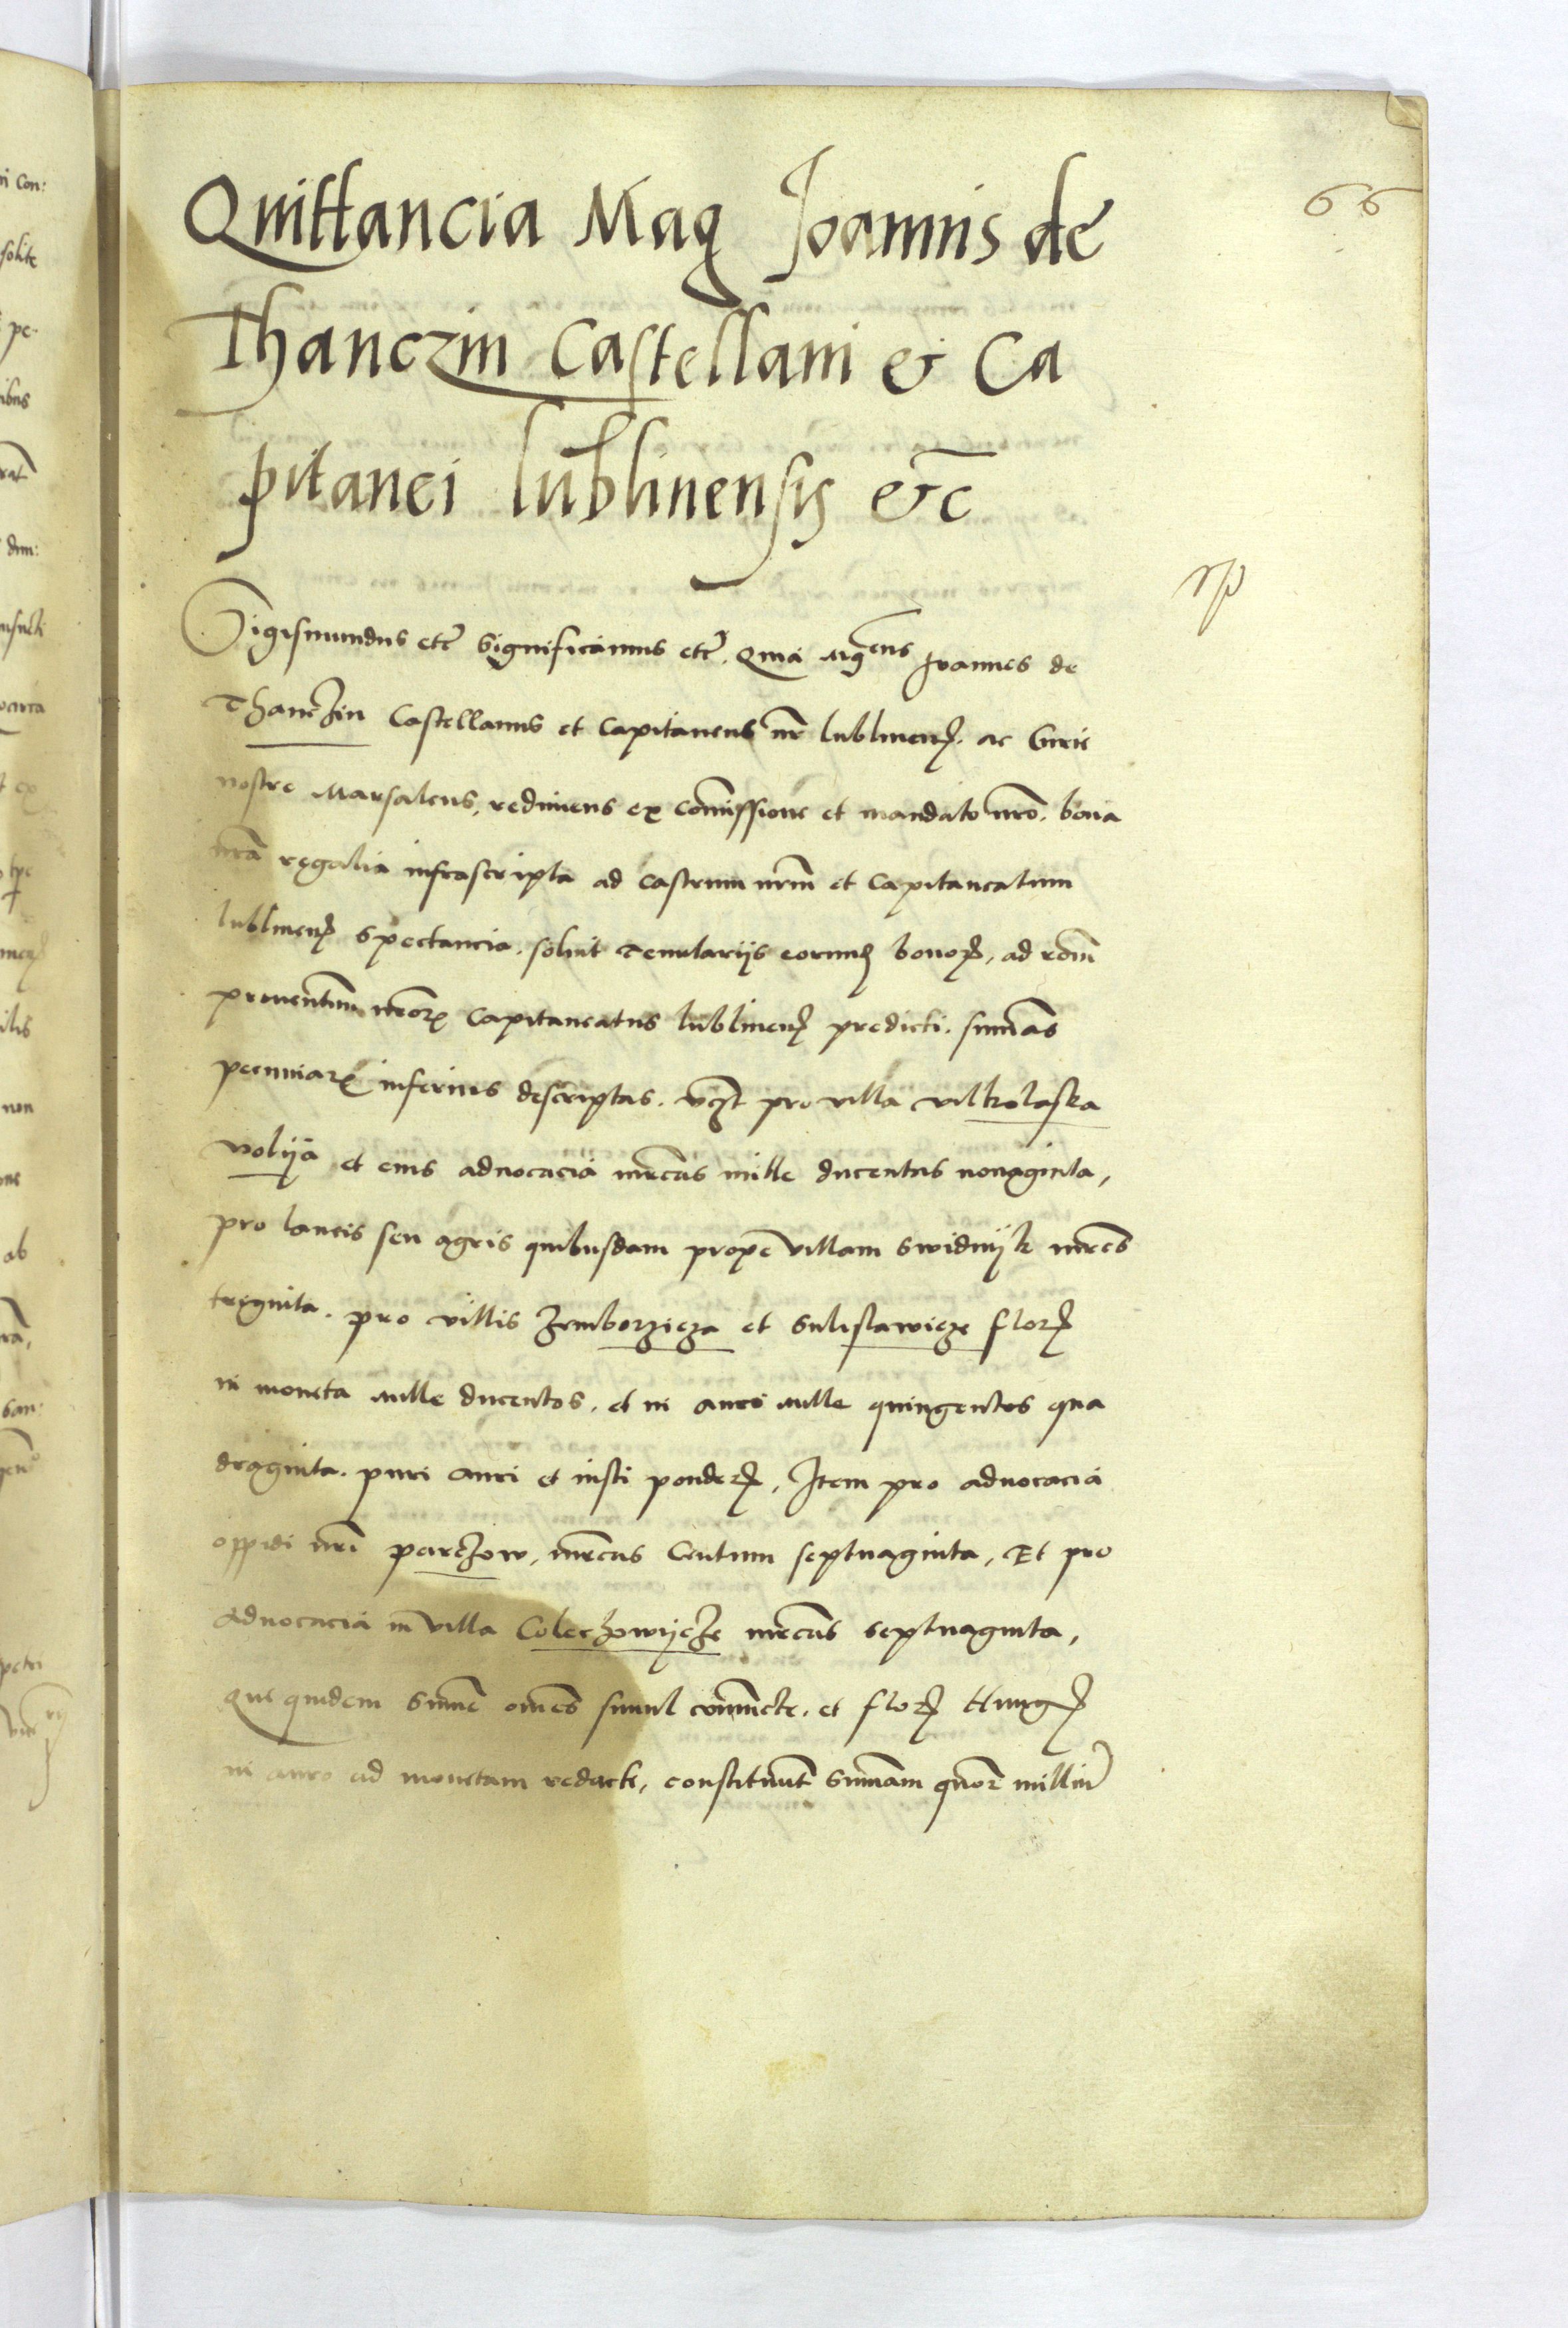 66
Quittancia Mag Joannis de
Thanczin Castellani & Ca
pitanei lublinensis &c̄
Sigismundus etc̄ Significamus etc̄. Quia Mgͤⁿˢ Joannes de
Thanczin Castellanus et Capitaneus nr̄ lublinenꝭ. ac Curie
nostre Marsalcus, redimens ex com̄issione et mandato nr̄o. bona
nr̄a regalia infrascripta ad castrum nr̄m et Capitaneatum
lublinenꝭ spectancia. soluit Tenutarijs eorundꝭ bonoꝝ, ad rōm̄
prouentuum nr̄oꝝ Capitaneatus lublinenꝭ predicti. sum̄as
pecuniaꝝ inferius descriptas. vcꝫt pro villa vilkolaska
volija et eius aduocacia mr̄cas mille ducentas nonaginta,
pro laneis seu agris quibusdam prope villam Swidnijk mr̄cas
triginta. pro villis Zemborzicza et Sulislawicze florꝭ
in moneta mille ducentos. et in auro mille quingentos qua
draginta. puri auri et iusti ponderꝭ, Item pro aduocacia
oppidi nr̄i parczow, mr̄cas Centum septuaginta, Et pro
aduocacia in villa Coleczowijcze mr̄cas septuaginta,
que quidem Sum̄e om̄es simul coniuncte. et florꝭ Hungꝭ
in auro ad monetam redacte, constituunt Sum̄am quor̄ milliū